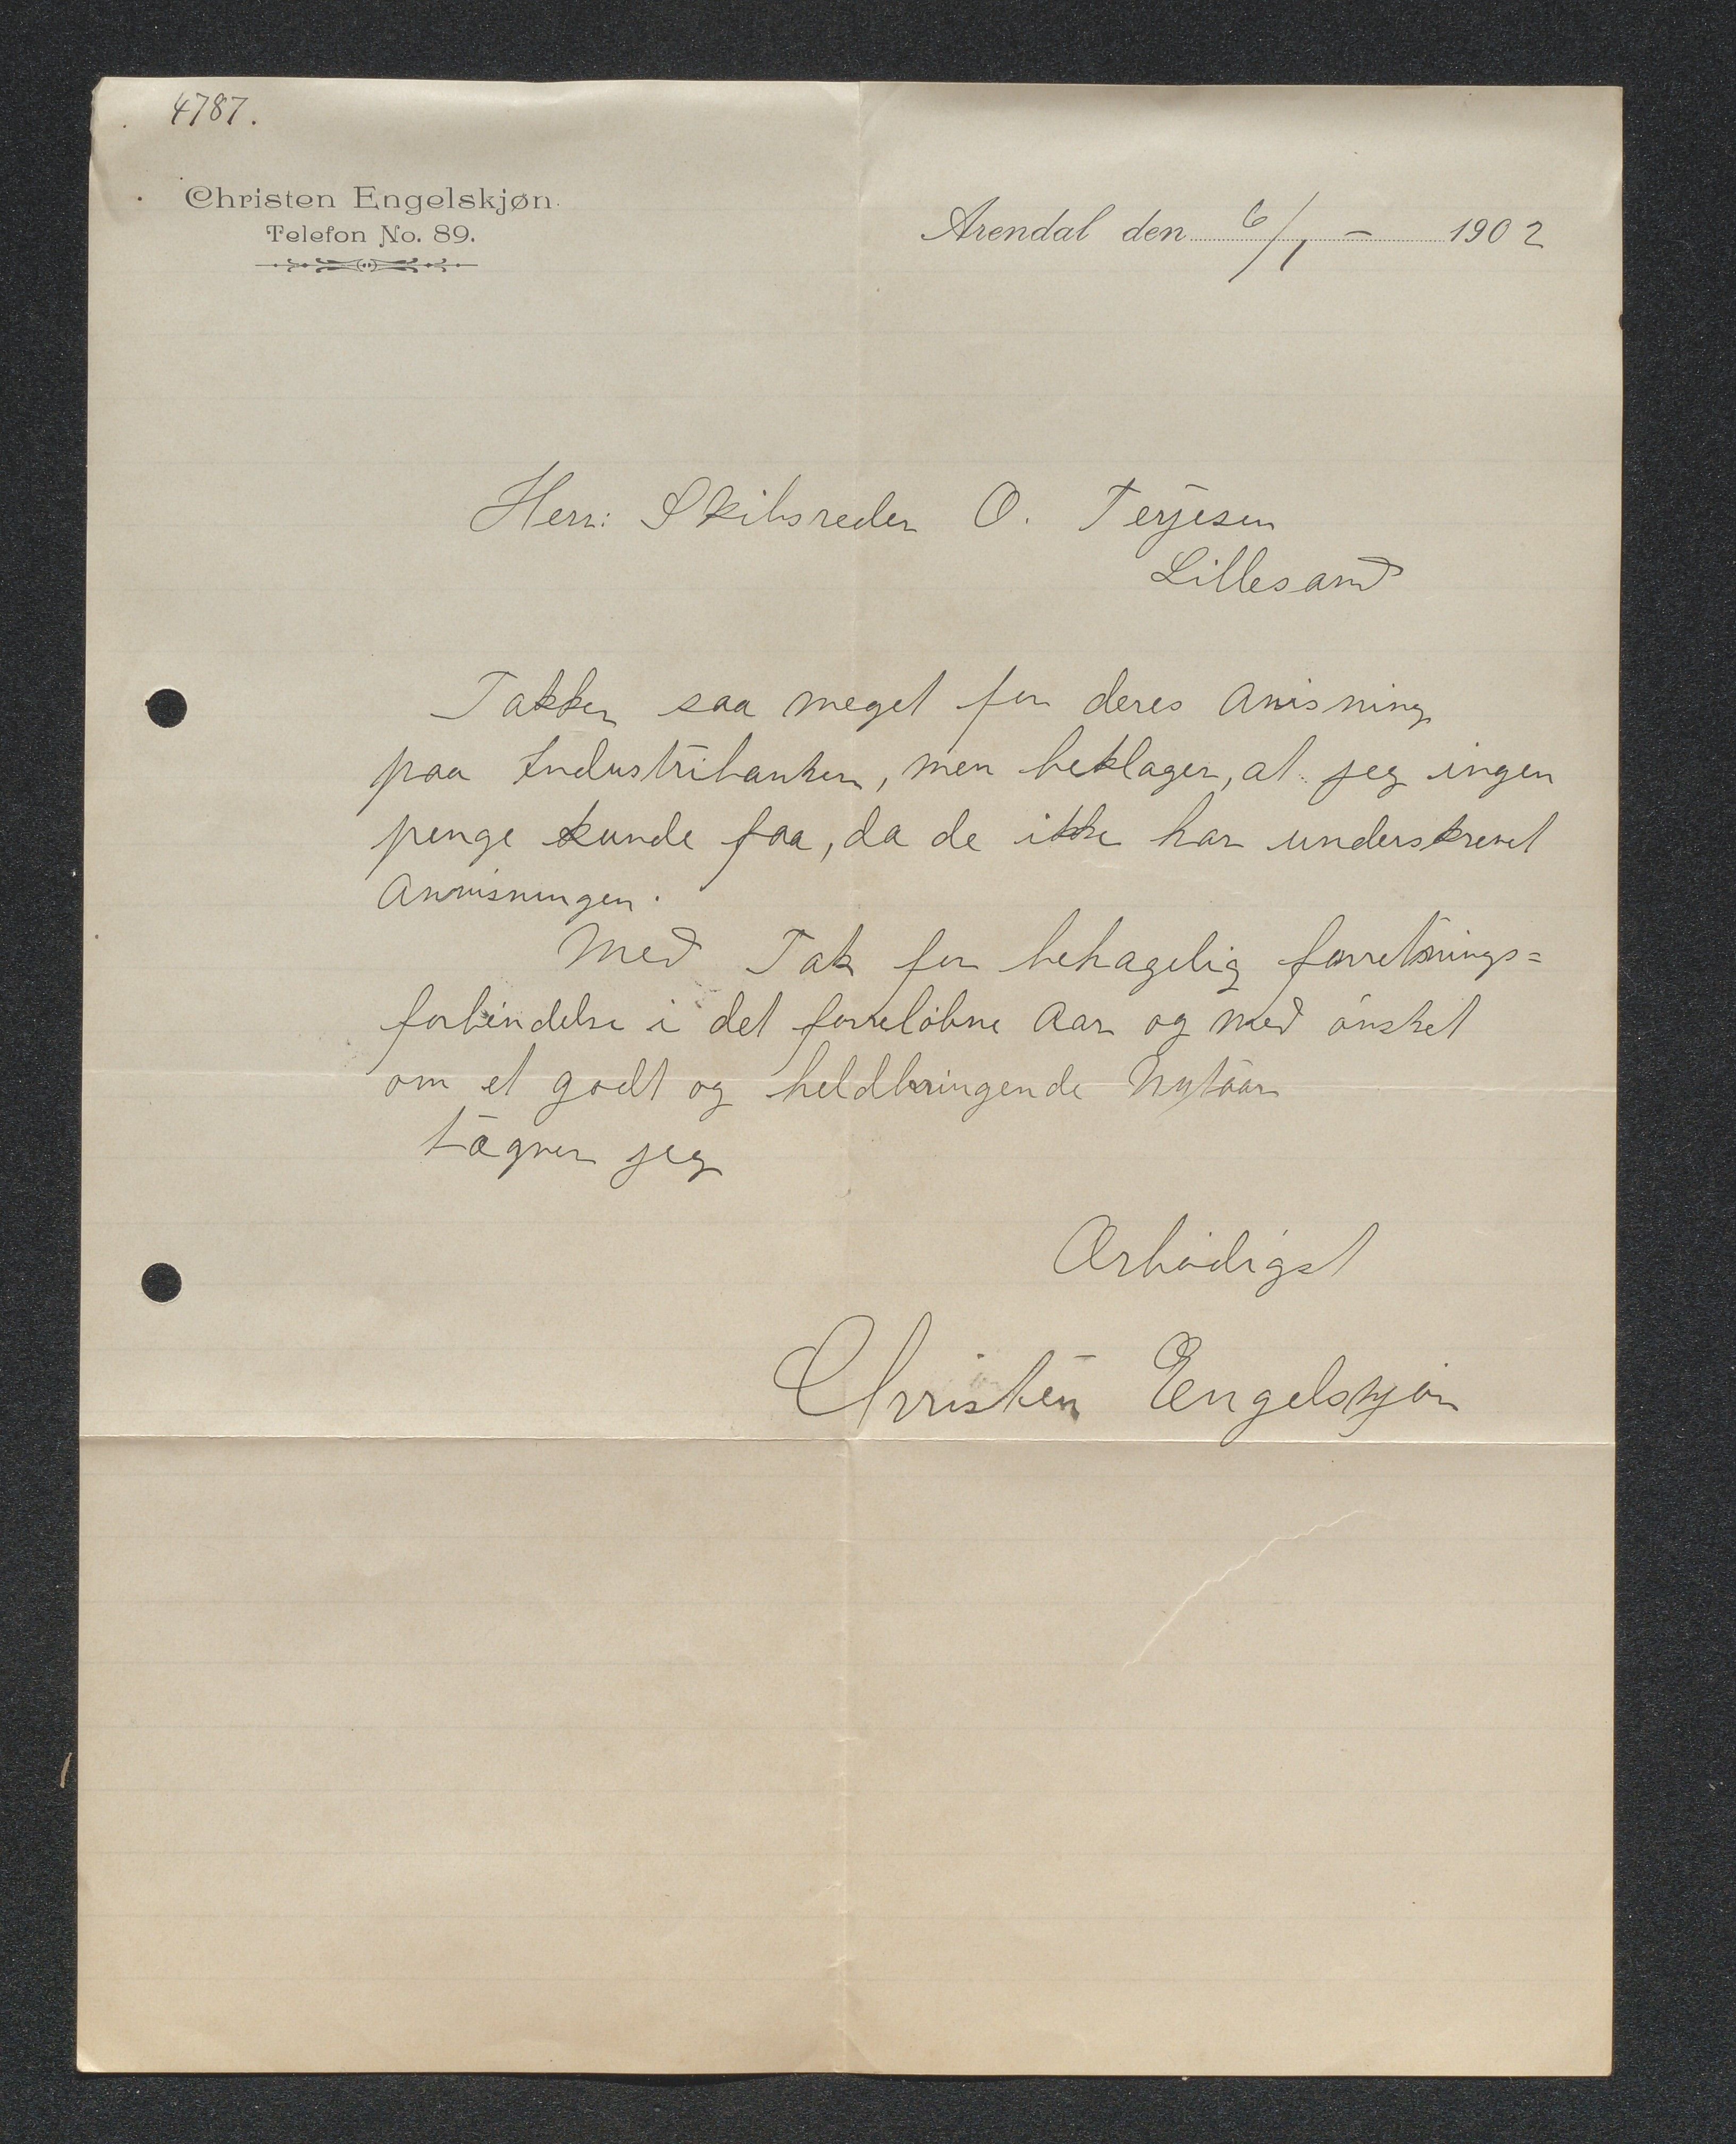 4787.
Christen Engelskjøn.
Telefon No. 89.
Arendal den 6/1 - 1902
Herr: Skibsreder O. Terjesen
Lillesand
Takker saa meget for deres Anisning
paa Industribanken, men beklager, at jeg ingen
penge kunde faa, da de ikke har underskrevet
Anvisningen.
Med Tak for behagelig forretnings=
forbindelse i det forreløbne Aar og med ønsket
om et godt og heldbringende Nytaar
tægner jeg
Ærbødigst
Christen Engelskjøn